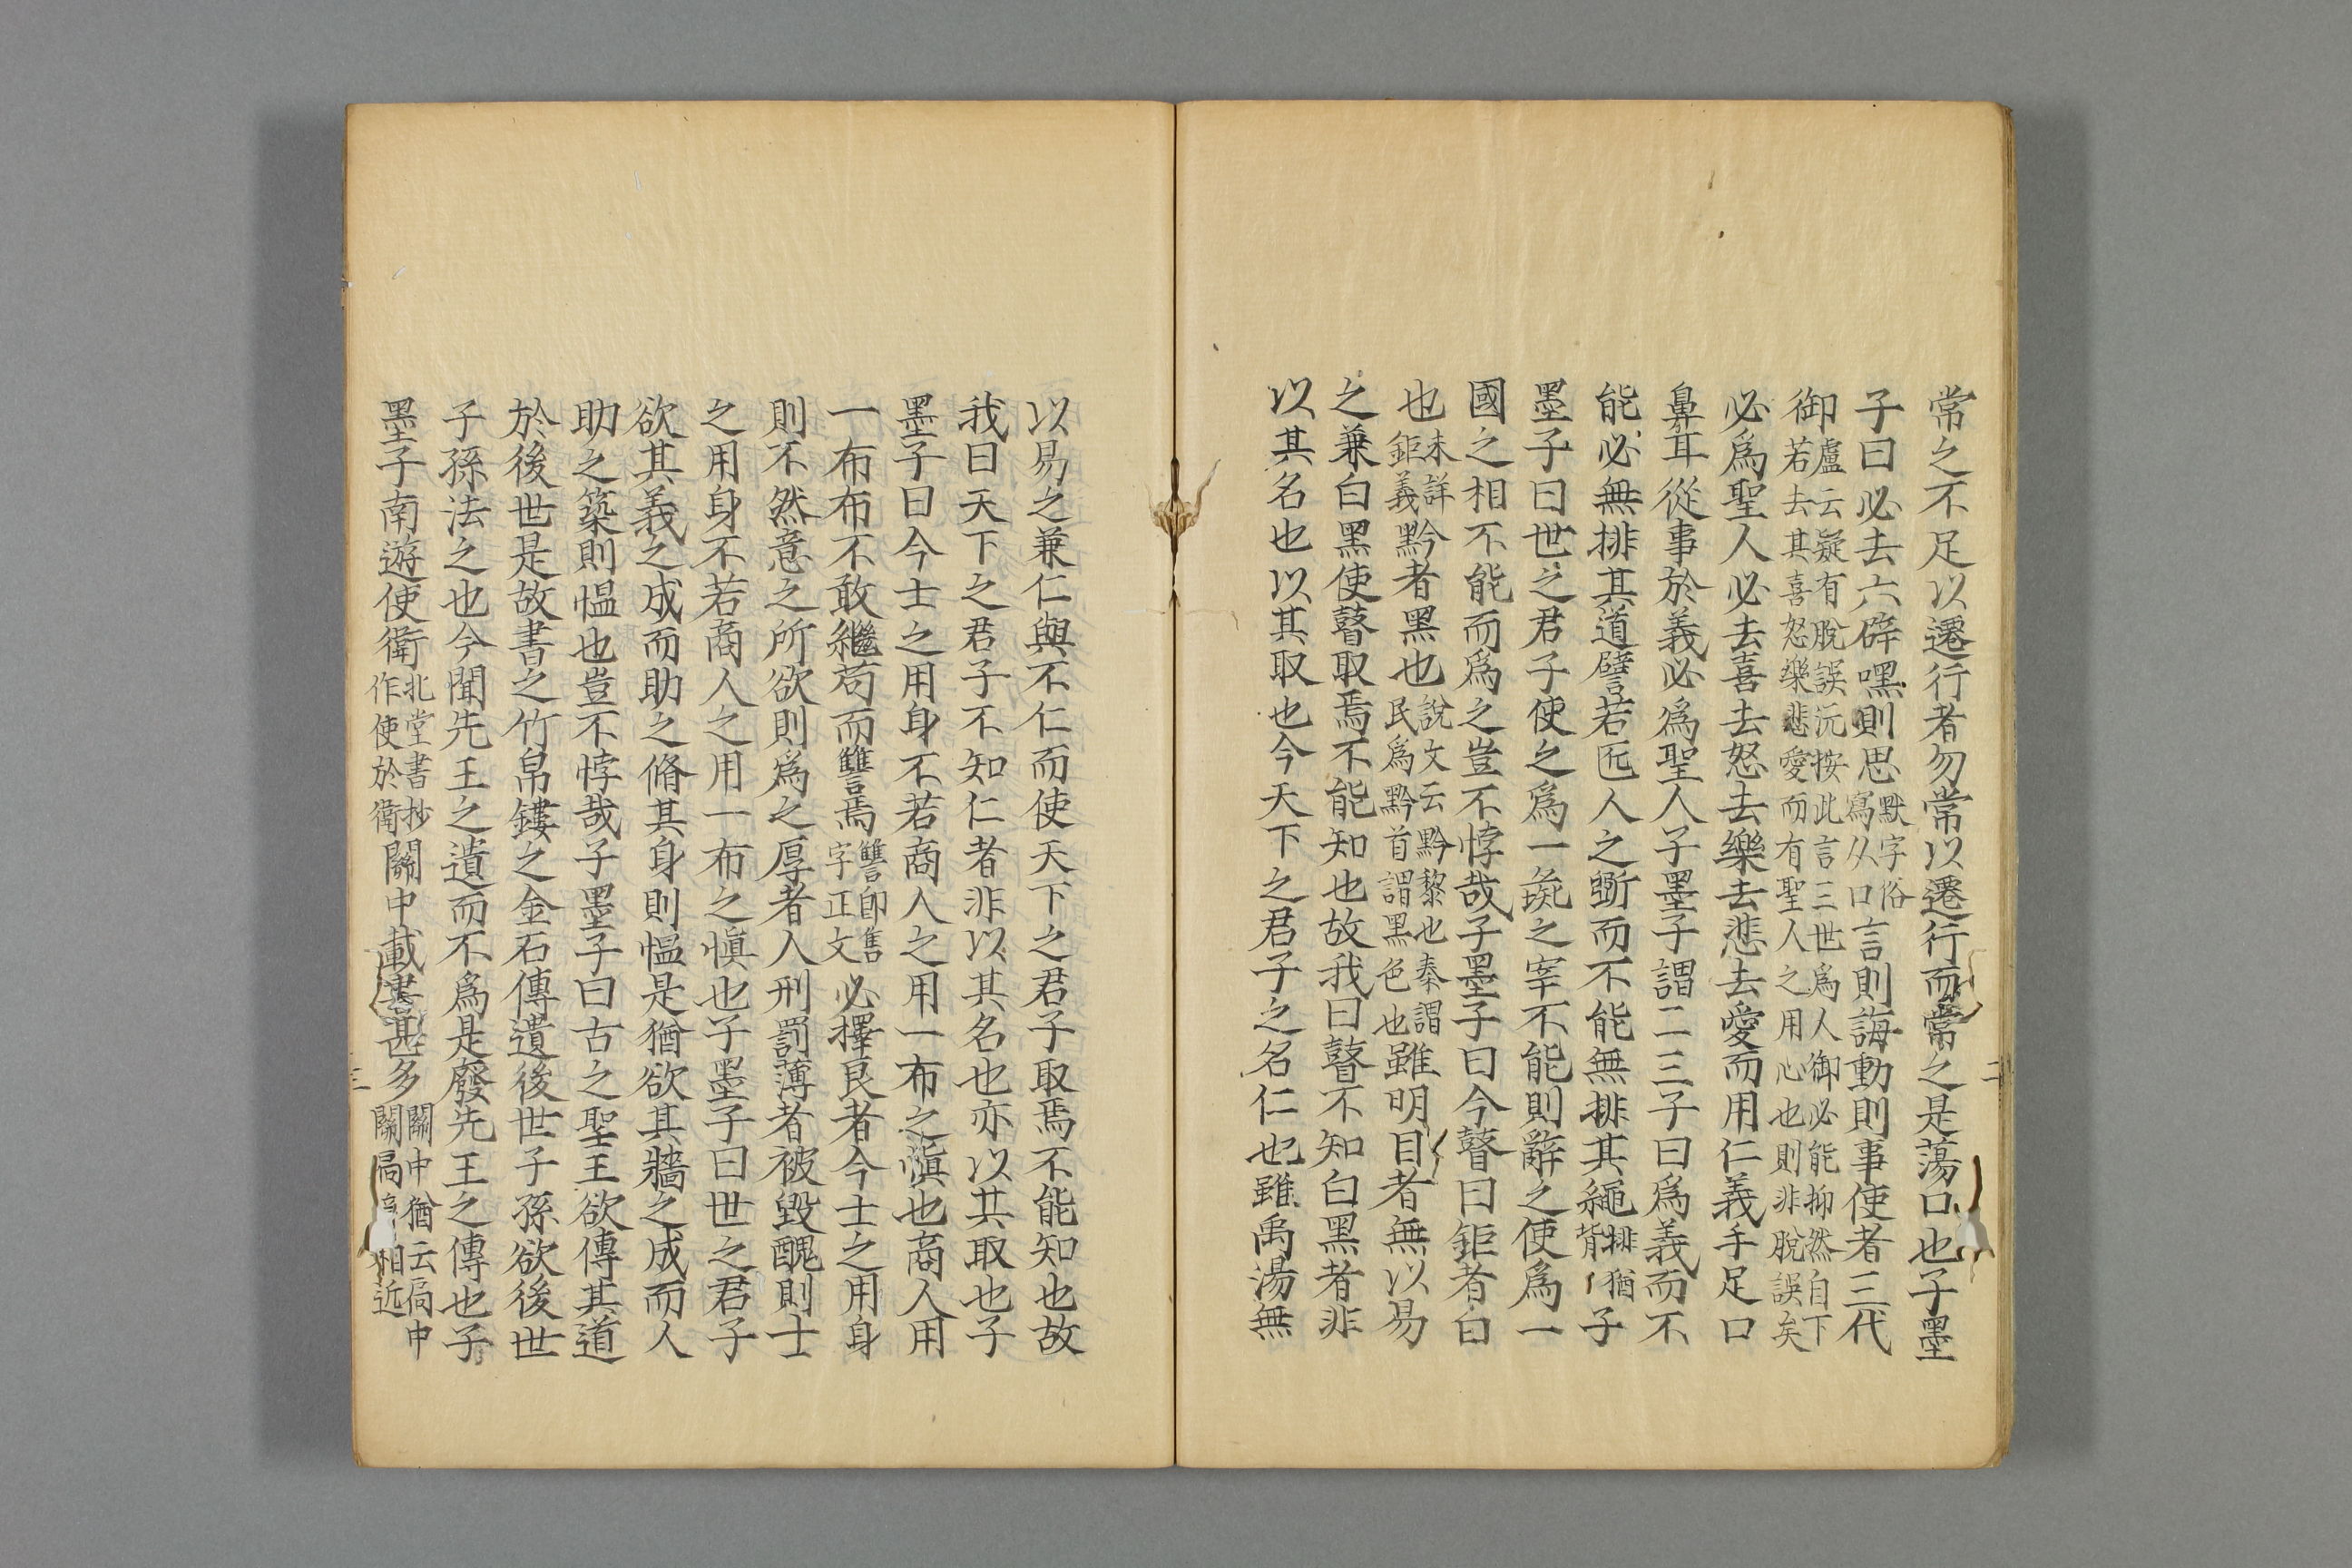 常之不足以遷行者勿常以遷行而常之是蕩口也子墨
子曰必去六辟嘿則思默字俗寫从口言則誨動則事使者三代
御盧云疑有脫誤沅按此言三世爲人御必能抑然自下若去其喜怒樂悲愛而有聖人之用心也則非脫誤矣
必爲聖人必去喜去怒去樂去悲去愛而用仁義手足口
鼻耳從事於義必爲聖人子墨子謂二三子曰爲義而不
能必無排其道譬若匠人之斲而不能無排其繩排猶背子
墨子曰世之君子使之爲一彘之宰不能則辭之使爲一
國之相不能而爲之豈不悖哉子墨子曰今瞽曰鉅者白
也未詳鉅義黔者黑也說文云黔黎也秦謂民爲黔首謂黑色也雖明目者無以易
之兼白黑使瞽取焉不能知也故我曰瞽不知白黑者非
以其名也以其取也今天下之君子之名仁也雖禹湯無
二
以易之兼仁與不仁而使天下之君子取焉不能知也故
我曰天下之君子不知仁者非以其名也亦以其取也子
墨子曰今士之用身不若商人之用一布之愼也商人用
一布布不敢繼苟而讐焉讐卽售字正文必擇良者今士之用身
則不然意之所欲則爲之厚者入刑罰薄者被毀醜則士
之用身不若商人之用一布之愼也子墨子曰世之君子
欲其義之成而助之脩其身則愠是猶欲其牆之成而人
助之築則愠也豈不悖哉子墨子曰古之聖王欲傳其道
於後世是故書之竹帛鏤之金石傳遺後世子孫欲後世
子孫法之也今聞先王之遺而不爲是廢先王之傳也子
墨子南遊使衛北堂書抄作使於衛關中載書甚多關中猶云扃中關扃相近
三